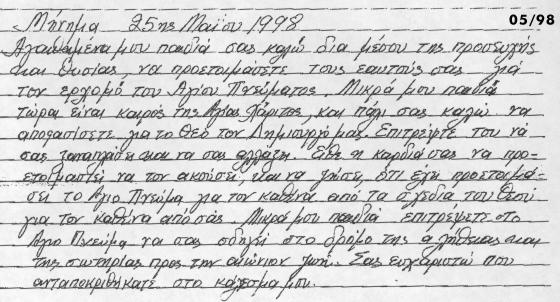 Μήνημα 25ης Μαϊου 1998
05/98
Αγαπημένα μου παιδιά σας καλώ δια μέσου της προσευχής
και θυσίας, να προετοιμάσετε τους εαυτούς σας γιά
τον ερχομό του Αγίου Πνεύματος. Μικρά μου παιδιά
τώρα είναι καιρός της Αγίας Χάριτος, και πάλι σας καλώ να
αποφασίσετε για το Θεό τον Δημιουργό μας. Επιτρέψτε του νά
σας ξαναπλάσει και να σας αλλάξη. Είθε η καρδιά σας να προ-
ετοιμαστεί να τον ακούσει, και να ζήσει, ότι έχει προετοιμά-
σει το Αγιο Πνεύμα για τον καθένα από τα σχέδια του Θεού
για τον καθένα από σάς. Μικρά μου παιδιά επιτρέψετε στο
Αγιο Πνεύμα να σας οδηγεί στο δρόμο της αλήθειας και
της σωτηρίας προς την αιώνιον ζωή. Σας ευχαριστώ που
ανταποκριθήκατε στο κάλεσμα μου.